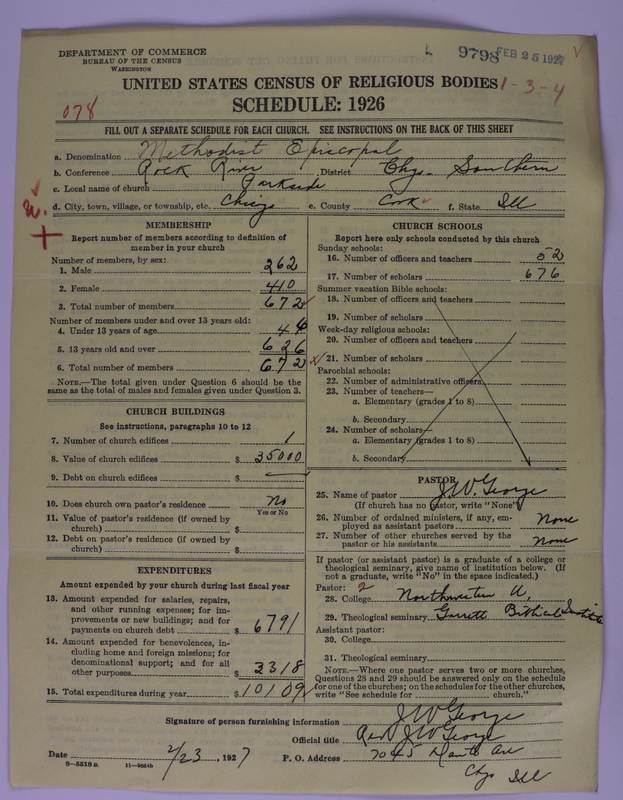 DEPARTMENT OF COMMERCE
BUREAU OF THE CENSUS
WASHINGTON
9798 FEB 25 1927
UNITED STATES CENSUS OF RELIGIOUS BODIES 1-3-4
078 SCHEDULE: 1926
FILL OUT A SEPARATE SCHEDULE FOR EACH CHURCH. SEE INSTRUCTIONS ON THE BACK OF THIS SHEET
a. Denomination Methodist Episcopal
b. Conference Rock River District Chgo. Southern
c. Local name of church Parkside
d. City, town, village, or township, etc. Chicago e. County Cook f. State Ill
MEMBERSHIP
Report number of members according to definition of
member in your church
Number of members, by sex:
1. Male 262
2. Female 410
3. Total number of members 672
Number of members under and over 13 years old:
4. Under 13 years of age 46
5. 13 years old and over 626
6. Total number of members 672
NOTE.—The total given under Question 6 should be the
same as the total of males and females given under Question 3.
CHURCH BUILDINGS
See instructions, paragraphs 10 to 12
7. Number of church edifices 1
8. Value of church edifices $ 35000
9. Debt on church edifices $
10. Does church own pastor's residence No
Yes or No
11. Value of pastor's residence (if owned by
church) $
12. Debt on pastor's residence (if owned by
church) $
EXPENDITURES
Amount expended by your church during last fiscal year
13. Amount expended for salaries, repairs,
and other running expenses; for im-
provements or new buildings; and for
payments on church debt $ 6791
14. Amount expended for benevolences, in-
cluding home and foreign missions; for
denominational support; and for all
other purposes 3318
15. Total expenditures during year $ 10109
CHURCH SCHOOLS
Report here only schools conducted by this church
Sunday schools:
16. Number of officers and teachers 52
17. Number of scholars 676
Summer vacation Bible schools:
18. Number of officers and teachers
19. Number of scholars
Week-day religious schools:
20. Number of officers and teachers
21. Number of scholars
Parochial schools:
22. Number of administrative officers
23. Number of teachers—
a. Elementary (grades 1 to 8)
b. Secondary
24. Number of scholars—
a. Elementary (grades 1 to 8)
b. Secondary
PASTOR
25. Name of pastor J.W. George
(If church has no pastor, write "None")
26. Number of ordained ministers, if any, em-
ployed as assistant pastors None
27. Number of other churches served by the
pastor or his assistants None
If pastor (or assistant pastor) is a graduate of a college or
theological seminary, give name of institution below. (If
not a graduate, write "No" in the space indicated.)
Pastor: 2
28. College Northwestern U.
29. Theological seminary Garrett Biblical Institute
Assistant pastor:
30. College
31. Theological seminary
NOTE.—Where one pastor serves two or more churches,
Questions 28 and 29 should be answered only on the schedule
for one of the churches; on the schedules for the other churches,
write "See schedule for church."
Signature of person furnishing information J W George
Official title Rev J W George
Date 2/23, 1927 P. O. Address 7045 Ave
Chgo Ill
8—5318 a 11—9524b